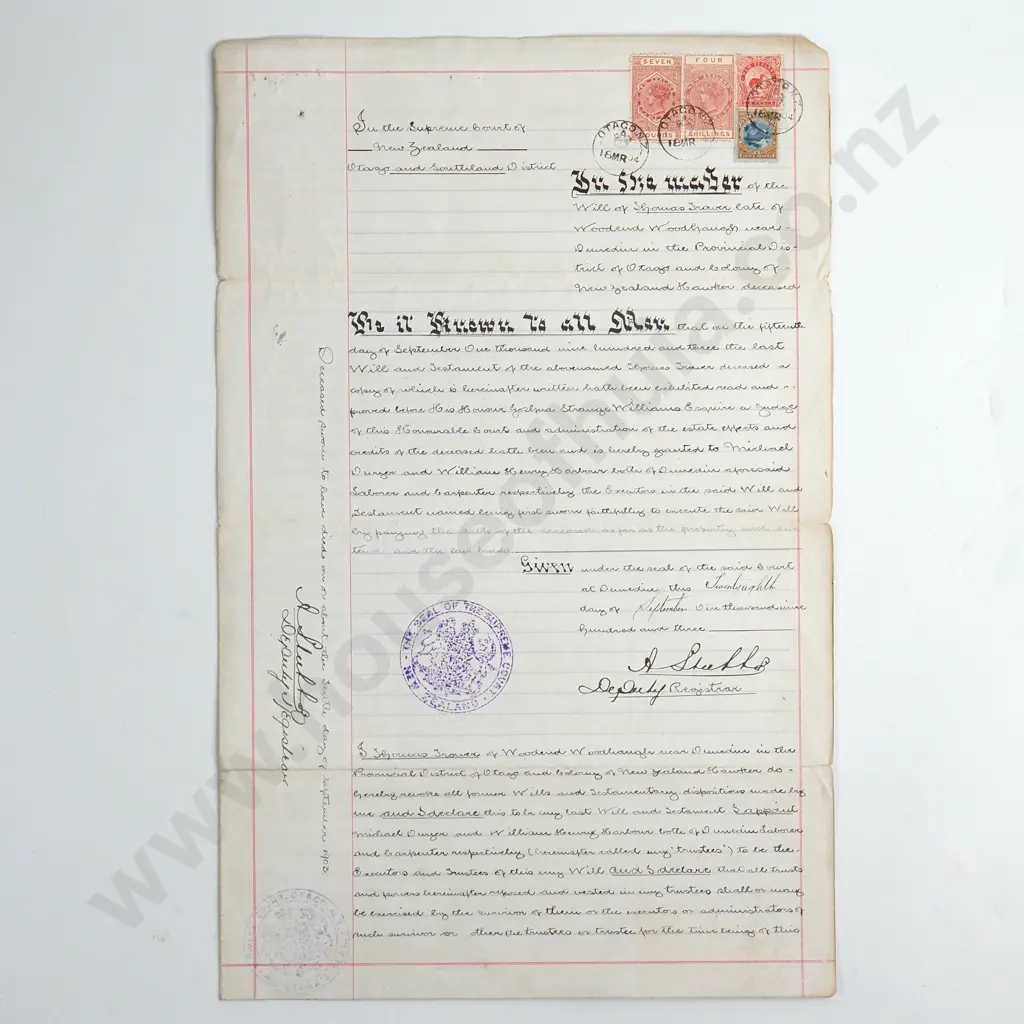 SEVEN
FOUR
POUNDS
SHILLINGS
NEW ZEALAND
OTAGO N.Z
16 MR 04
OTAGO N.Z
16 MR 04
OTAGO N.Z
16 MR 04
In the Supreme Court of
New Zealand
Otago and Southland District
In the matter of the
Will of Thomas Trower late of
Woodend Woodhaugh near
Dunedin in the Provincial Dis-
trict of Otago and Colony of
New Zealand Hawker deceased
Be it Known to all Men that on the fifteenth
day of September One thousand nine hundred and three the last
Will and Testament of the abovenamed Thomas Trower deceased a
copy of which is hereinafter written hath been exhibited read and
proved before His Honour Joshua Strange Williams Esquire a Judge
of this Honourable Court and administration of the estate effects and
credits of the deceased hath been and is hereby granted to Michael
Dwyer and William Henry Harbour both of Dunedin aforesaid
Laborer and Carpenter respectively the Executors in the said Will and
Testament named being first sworn faithfully to execute the said Will
by paying the debts of the deceased as far as the property will ex-
tend and the law binds
Given under the seal of the said Court
at Dunedin this Twentyeighth
day of September One thousand nine
hundred and three
A Stubbs
Deputy Registrar
THE SEAL OF THE SUPREME COURT
NEW ZEALAND
Deceased sworn to have died on or about the tenth day of September 1903
A Stubbs
Deputy Registrar
I Thomas Trower of Woodend Woodhaugh near Dunedin in the
Provincial District of Otago and Colony of New Zealand Hawker do
hereby revoke all former Wills and Testamentary dispositions made by
me and I declare this to be my last Will and Testament I appoint
Michael Dwyer and William Henry Harbour both of Dunedin Laborer
and Carpenter respectively (hereinafter called my "trustees") to be the
Executors and Trustees of this my Will and I declare that all trusts
and powers hereinafter reposed and vested in my trustees shall or may
be exercised by the survivor of them or the executors or administrators of
such survivor or other the trustees or trustee for the time being of this
www.houseofhuia.co.nz